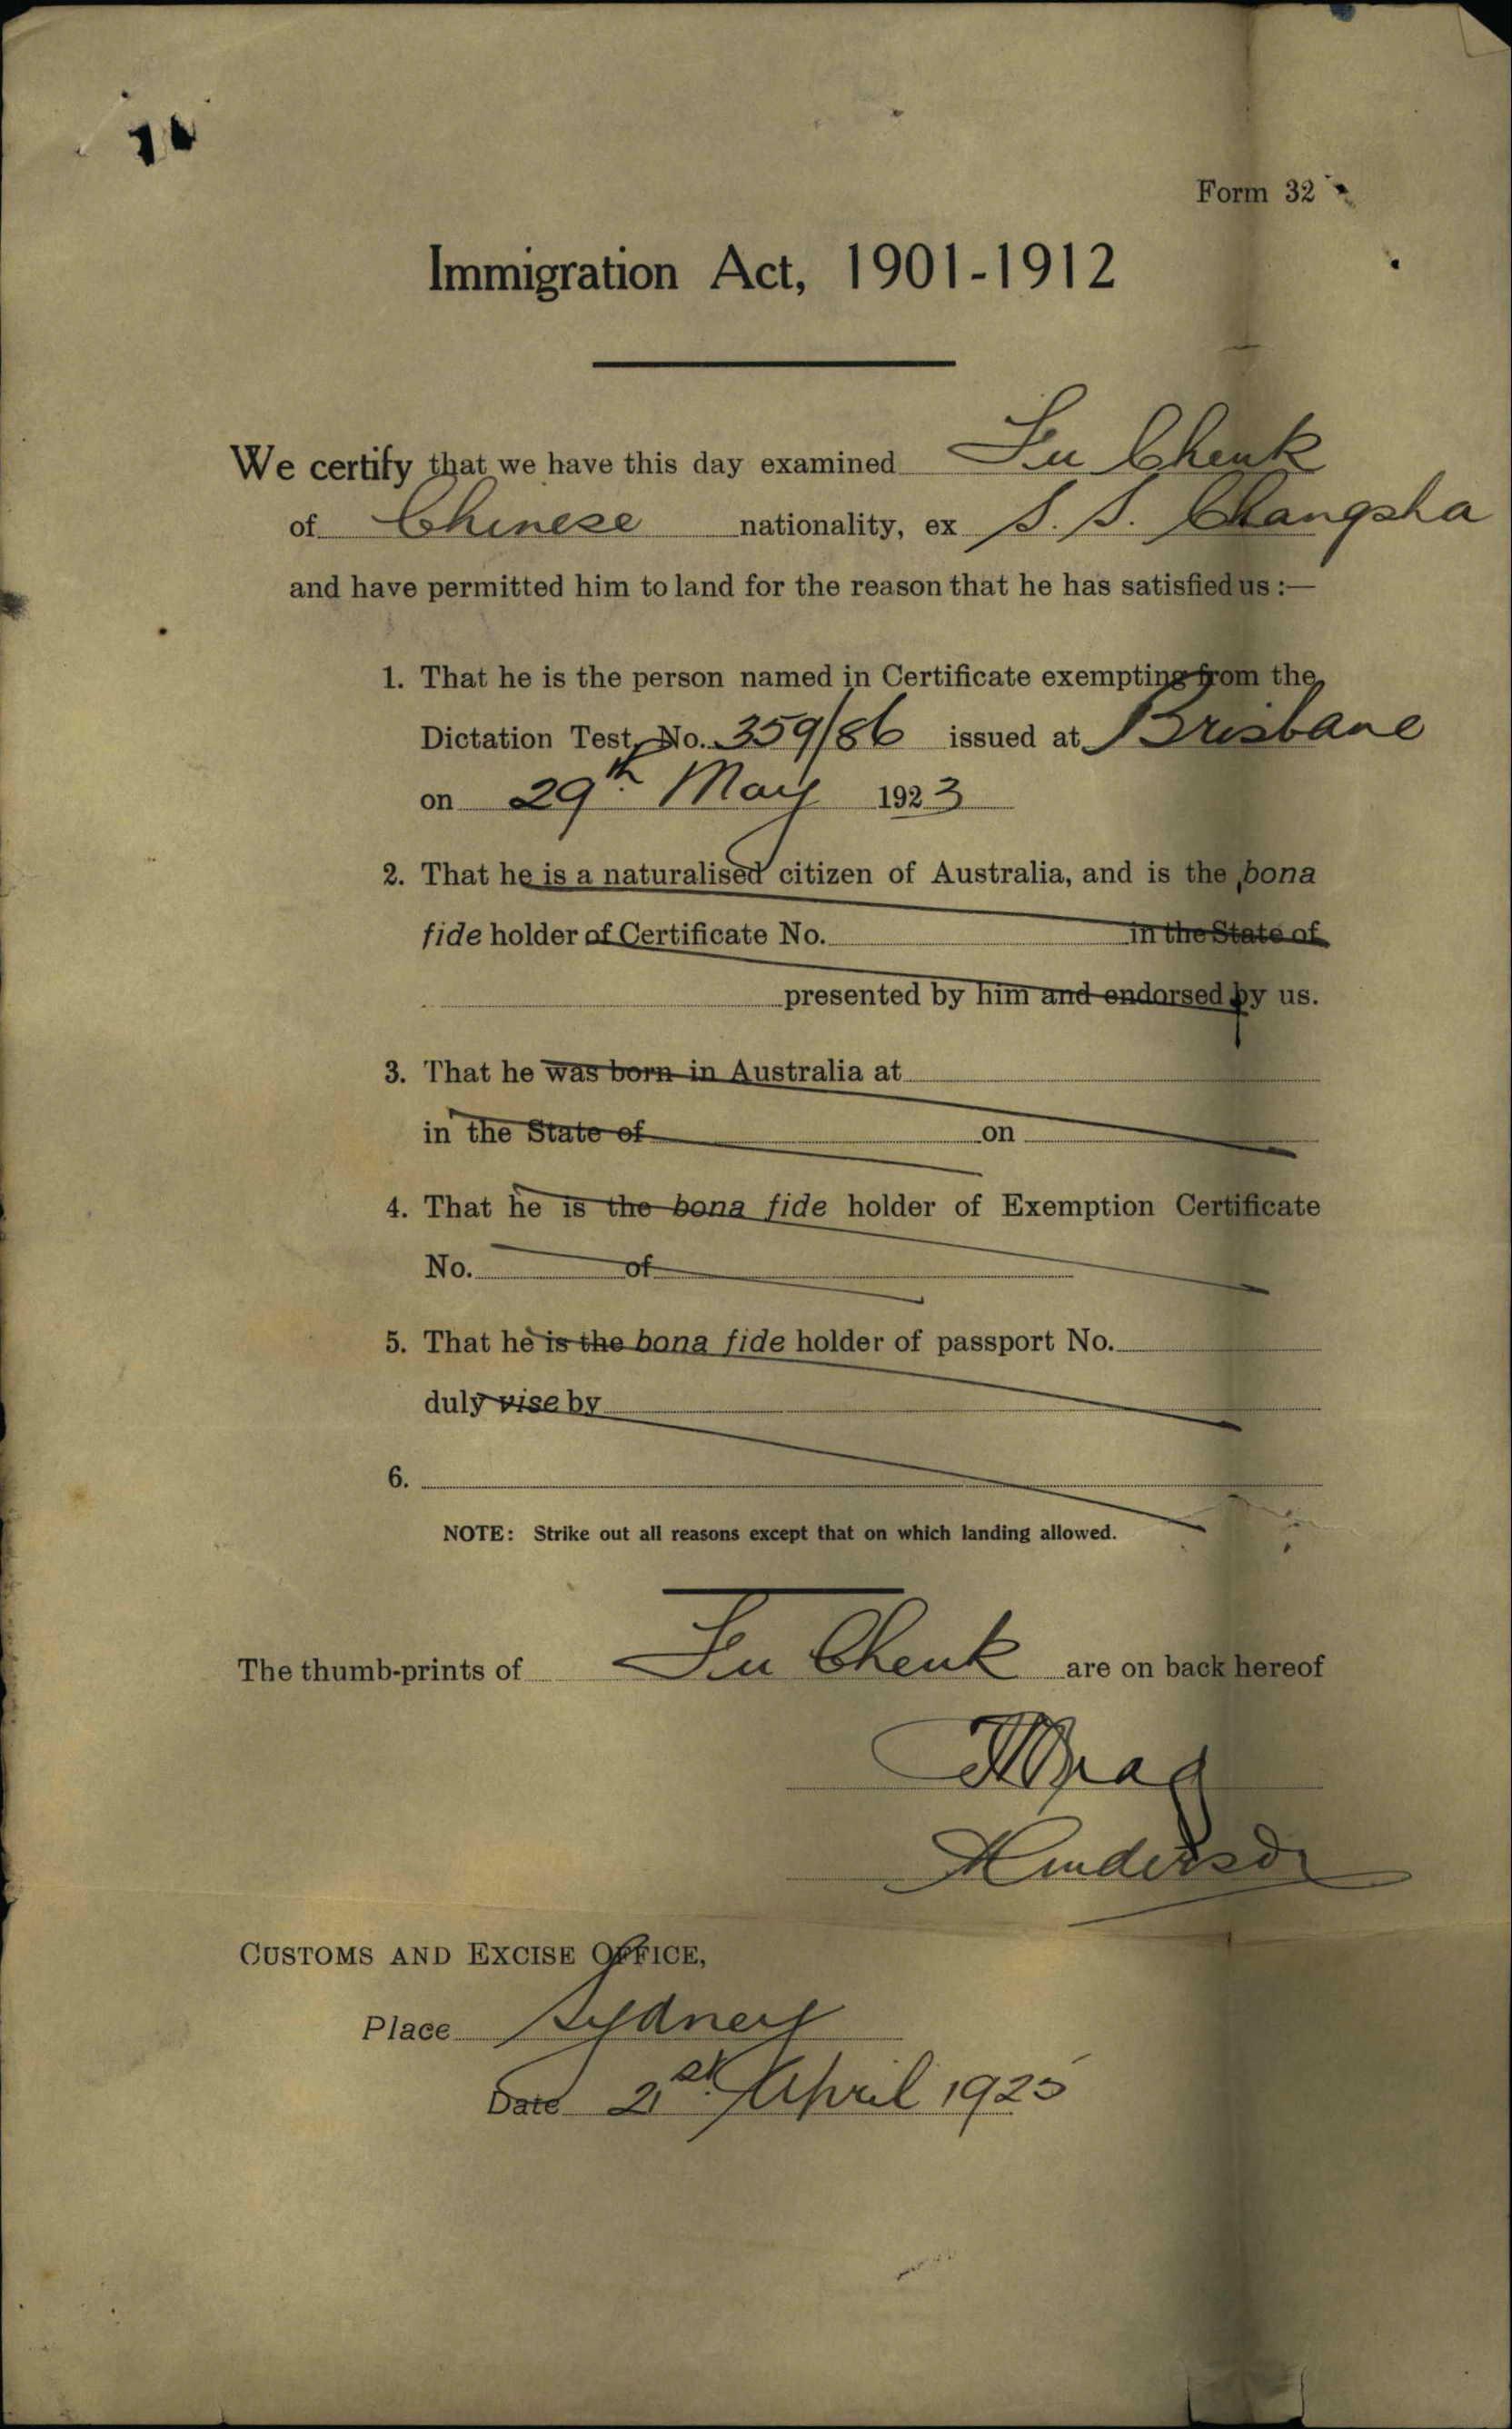 Form 32
Immigration Act, 1901-1912
We certify that we have this day examined Chenk
of Chinese nationality, ex S. S. Changsha
and have permitted him to land for the reason that he has satisfied us :—
1. That he is the person named in Certificate exempting from the
Dictation Test, No. 359/86 issued at Brisbane
on 29th May 1923
2. That he is a naturalised citizen of Australia, and is the bona
fide holder of Certificate No. in the State of
presented by him and endorsed by us.
3. That he was born in Australia at
in the State of on
4. That he is the bona fide holder of Exemption Certificate
No. of
5. That he is the bona fide holder of passport No.
duly vise by
6.
NOTE: Strike out all reasons except that on which landing allowed.
The thumb-prints of Chenk are on back hereof
CUSTOMS AND EXCISE OFFICE,
Place Sydney
Date 21st April 1925